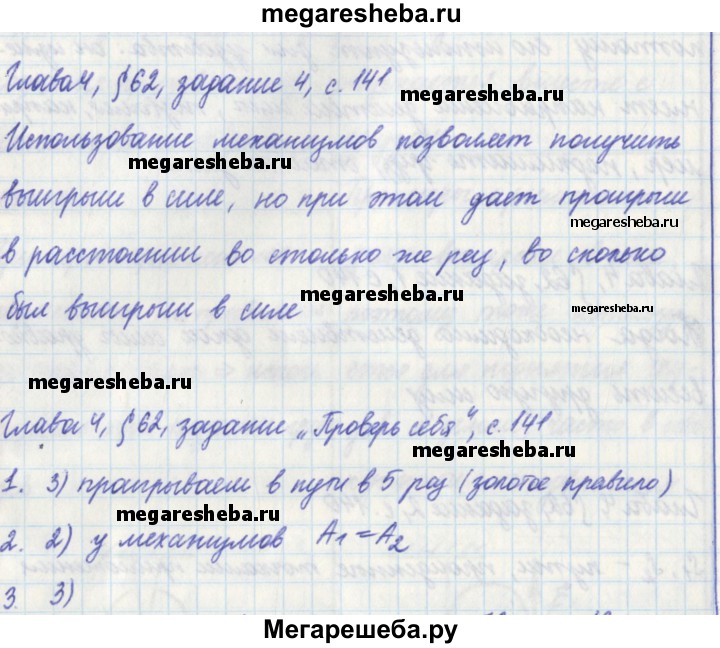 megaresheba.ru
Глава 4, § 62, задание 4, с. 141
megaresheba.ru
Использование механизмов позволяет получить
megaresheba.ru
выигрыш в силе, но при этом дает проигрыш
megaresheba.ru
в расстоянии во столько же раз, во сколько
был выигрыш в силе
megaresheba.ru
megaresheba.ru
megaresheba.ru
Глава 4, § 62, задание „Проверь себя“, с. 141
1. 3) проигрываем в пути в 5 раз (золотое правило)
megaresheba.ru
2. 2) у механизмов A1 = A2
megaresheba.ru
3. 3)
Мегарешеба.ру